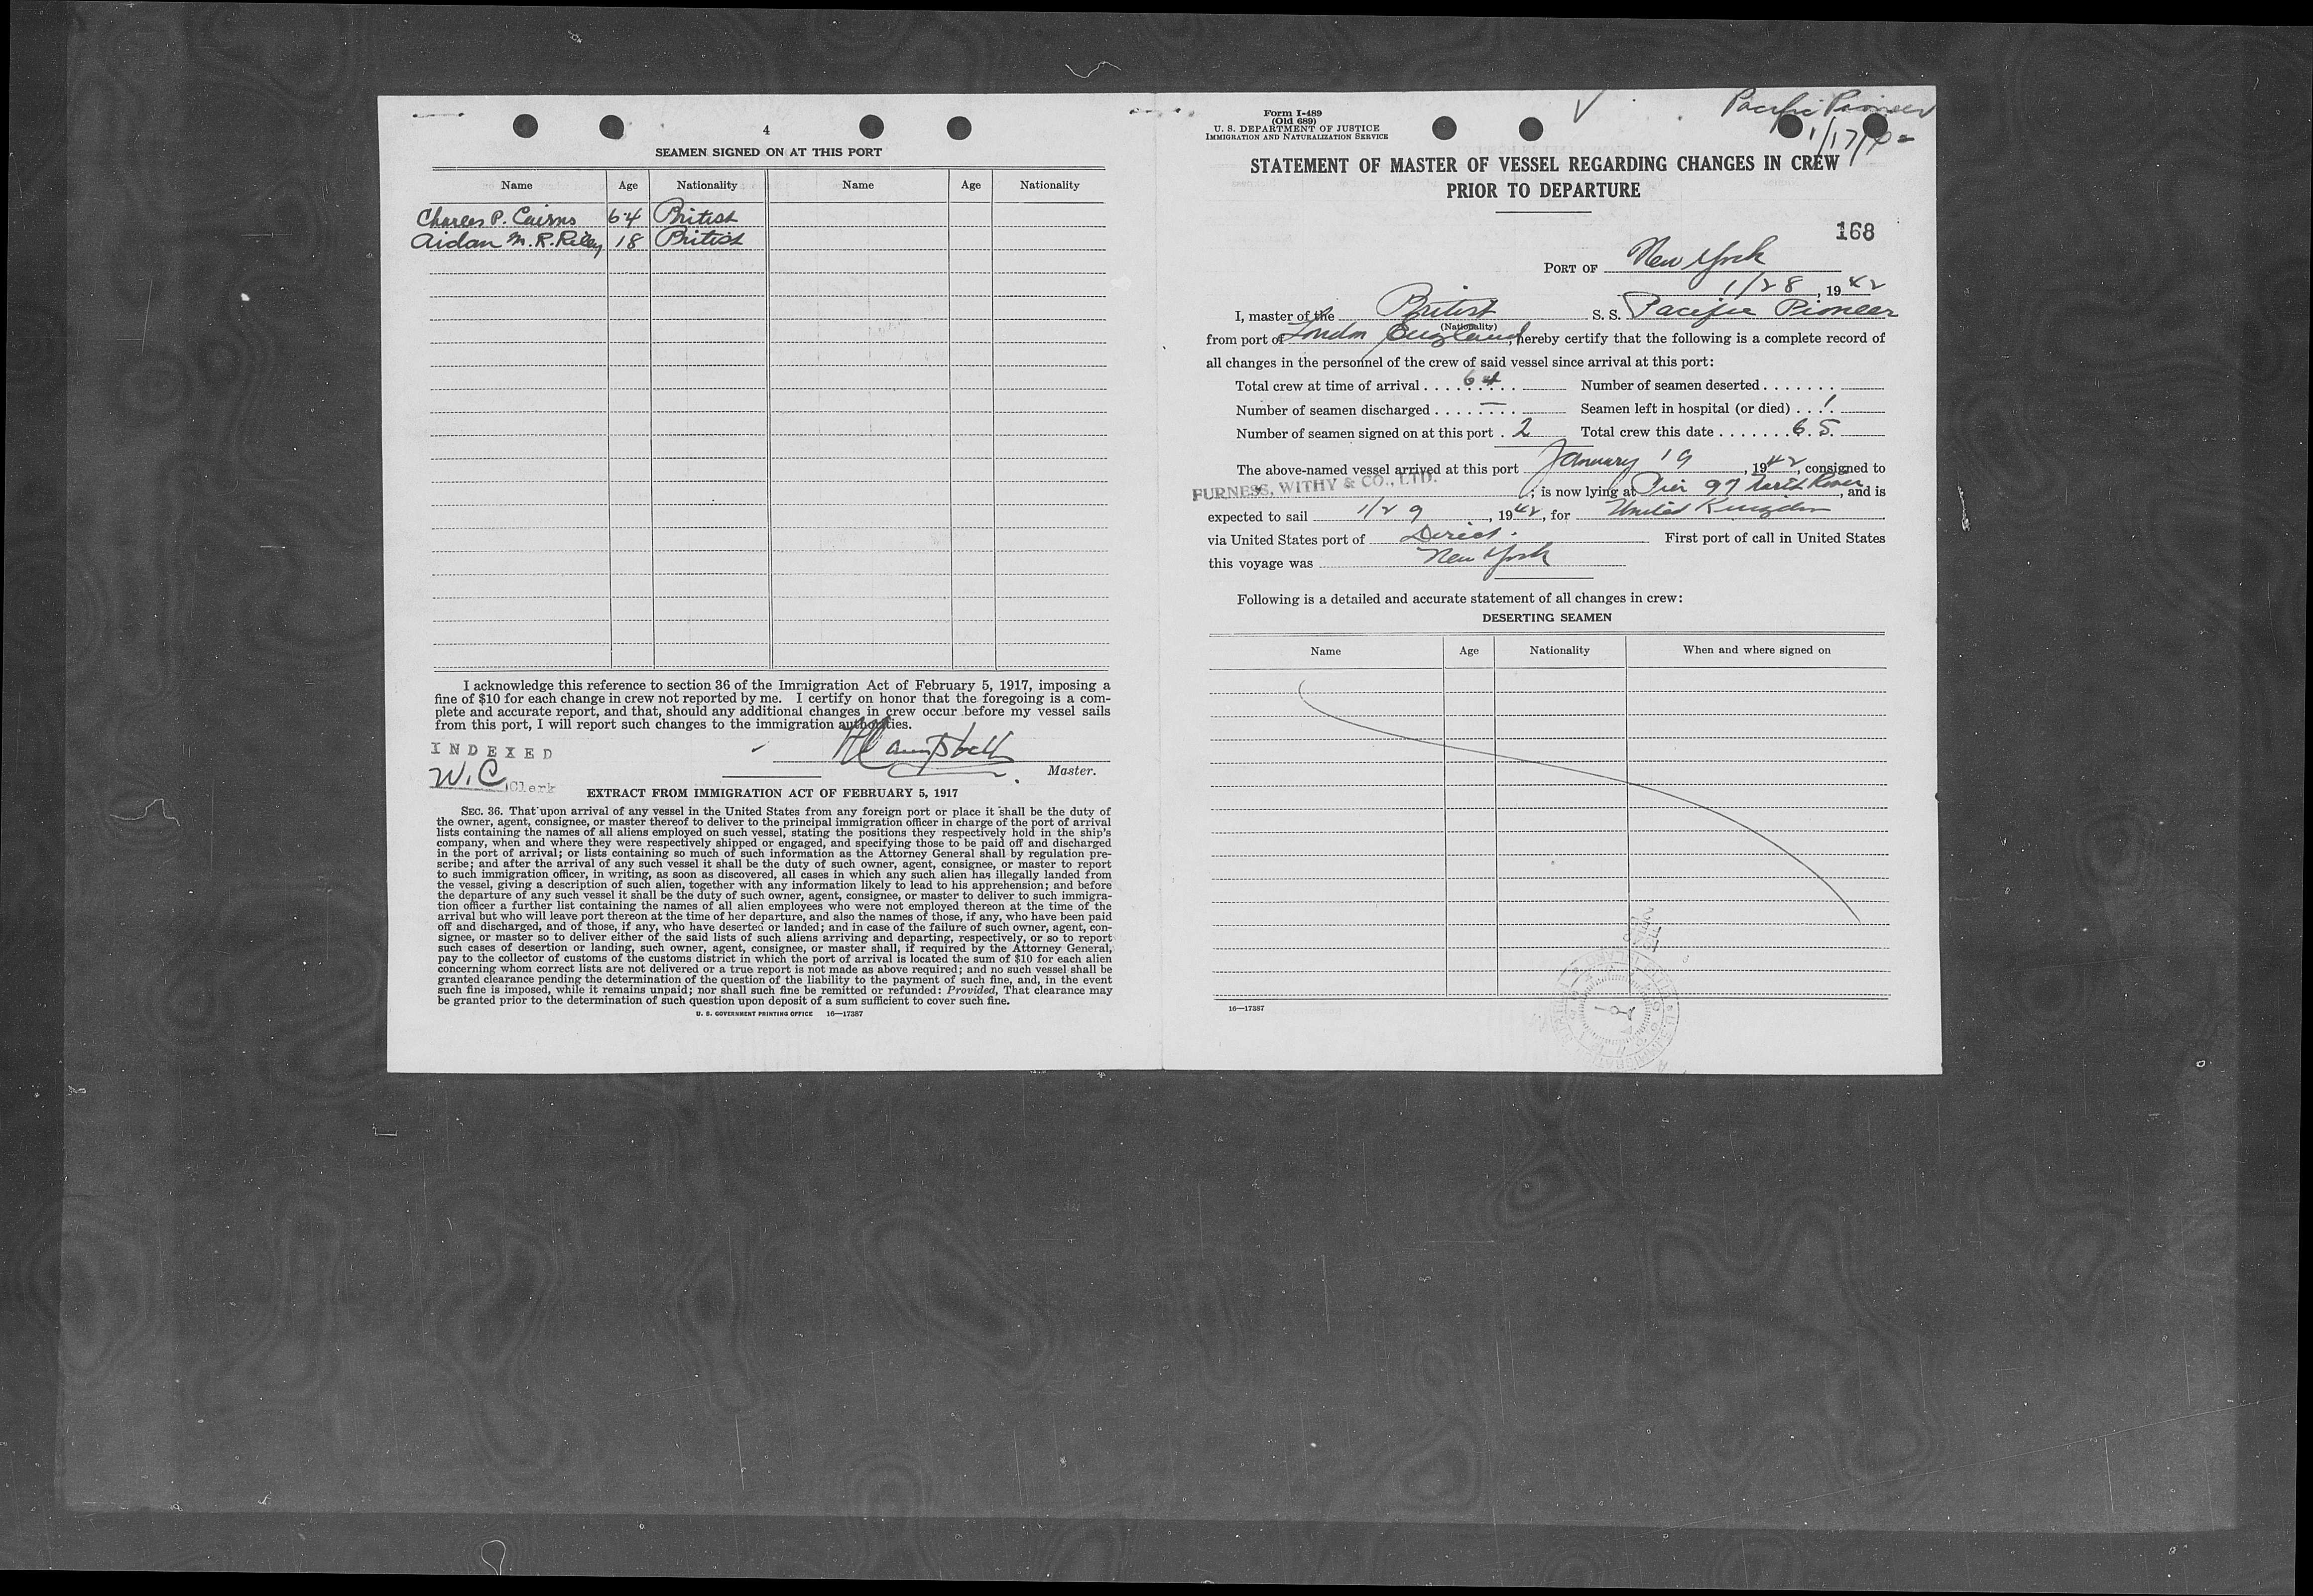 4
SEAMEN SIGNED ON AT THIS PORT
Name Age Nationality Name Age Nationality
Charles P. Cairns 64 British
Aidan M. R. Riley 18 British
I acknowledge this reference to section 36 of the Immigration Act of February 5, 1917, imposing a
fine of $10 for each change in crew not reported by me. I certify on honor that the foregoing is a com-
plete and accurate report, and that, should any additional changes in crew occur before my vessel sails
from this port, I will report such changes to the immigration authorities.
INDEXED
W.C. Clerk
Campbell
Master.
EXTRACT FROM IMMIGRATION ACT OF FEBRUARY 5, 1917
SEC. 36. That upon arrival of any vessel in the United States from any foreign port or place it shall be the duty of
the owner, agent, consignee, or master thereof to deliver to the principal immigration officer in charge of the port of arrival
lists containing the names of all aliens employed on such vessel, stating the positions they respectively hold in the ship's
company, when and where they were respectively shipped or engaged, and specifying those to be paid off and discharged
in the port of arrival; or lists containing so much of such information as the Attorney General shall by regulation pre-
scribe; and after the arrival of any such vessel it shall be the duty of such owner, agent, consignee, or master to report
to such immigration officer, in writing, as soon as discovered, all cases in which any such alien has illegally landed from
the vessel, giving a description of such alien, together with any information likely to lead to his apprehension; and before
the departure of any such vessel it shall be the duty of such owner, agent, consignee, or master to deliver to such immigra-
tion officer a further list containing the names of all alien employees who were not employed thereon at the time of the
arrival but who will leave port thereon at the time of her departure, and also the names of those, if any, who have been paid
off and discharged, and of those, if any, who have deserted or landed; and in case of the failure of such owner, agent, con-
signee, or master so to deliver either of the said lists of such aliens arriving and departing, respectively, or so to report
such cases of desertion or landing, such owner, agent, consignee, or master shall, if required by the Attorney General,
pay to the collector of customs of the customs district in which the port of arrival is located the sum of $10 for each alien
concerning whom correct lists are not delivered or a true report is not made as above required; and no such vessel shall be
granted clearance pending the determination of the question of the liability to the payment of such fine, and, in the event
such fine is imposed, while it remains unpaid; nor shall such fine be remitted or refunded: Provided, That clearance may
be granted prior to the determination of such question upon deposit of a sum sufficient to cover such fine.
U. S. GOVERNMENT PRINTING OFFICE 16—17387
Form I-489
(Old 689)
U. S. DEPARTMENT OF JUSTICE
IMMIGRATION AND NATURALIZATION SERVICE
Pacific Pioneer
1/17/42
STATEMENT OF MASTER OF VESSEL REGARDING CHANGES IN CREW
PRIOR TO DEPARTURE
168
PORT OF New York
1/28, 1942
I, master of the British S. S. Pacific Pioneer
(Nationality)
from port of London England, hereby certify that the following is a complete record of
all changes in the personnel of the crew of said vessel since arrival at this port:
Total crew at time of arrival . . . . 64 Number of seamen deserted . . . . . . .
Number of seamen discharged . . . . — Seamen left in hospital (or died) . . 1
Number of seamen signed on at this port . 2 Total crew this date . . . . . . . 65
The above-named vessel arrived at this port January 19, 1942, consigned to
FURNESS, WITHY & CO., LTD.; is now lying at Pier 97 North River, and is
expected to sail 1/29, 1942, for United Kingdom
via United States port of Direct. First port of call in United States
this voyage was New York
Following is a detailed and accurate statement of all changes in crew:
DESERTING SEAMEN
Name Age Nationality When and where signed on
16—17387